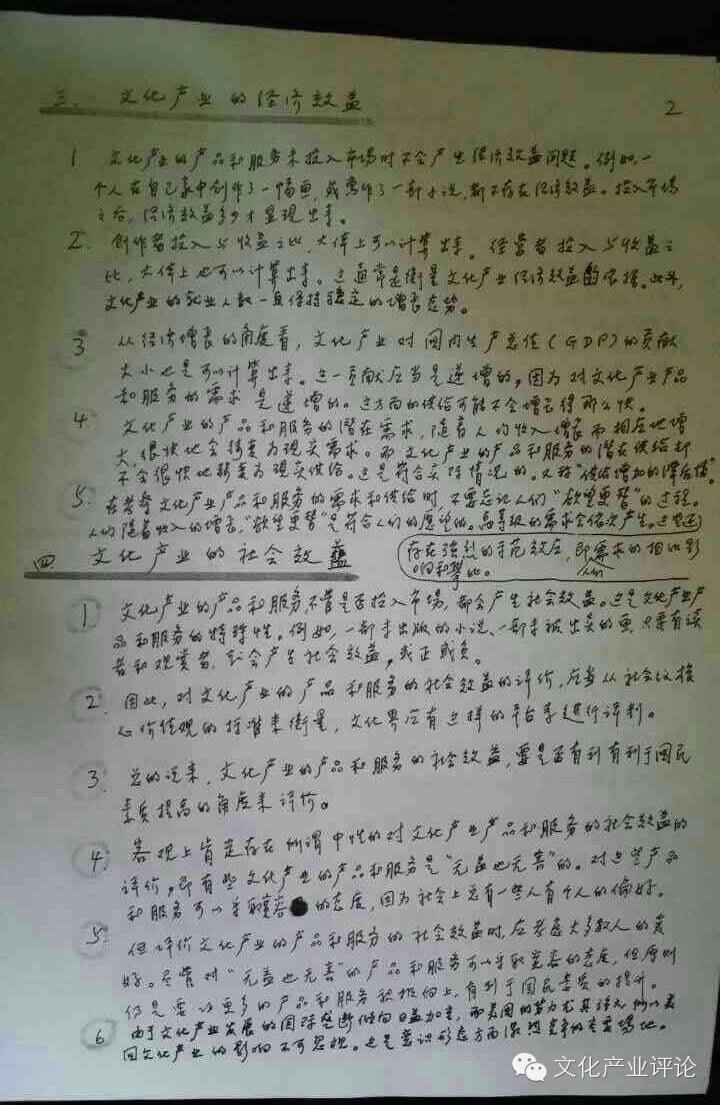 三、文化产业的经济效益
2
1 文化产业的产品和服务未投入市场时不会产生经济效益问题。例如,一
个人在自己家中创作了一幅画,或写作了一部小说,都不存在经济效益。投入市场
之后,经济效益多少才显现出来。
2. 创作者投入与收益之比,大体上可以计算出来。经营者投入与收益之
比,大体上也可以计算出来。这通常是衡量文化产业经济效益的依据。此外,
文化产业的就业人数一直保持稳定的增长态势。
3 从经济增长的角度看,文化产业对国内生产总值(GDP)的贡献
大小也是可以计算出来。这一贡献应当是递增的,因为对文化产业产品
和服务的需求是递增的。这方面的供给可能不会增长得那么快。
4 文化产业的产品和服务的潜在需求,随着人均收入增长而相应地增
大,很快地会转变为现实需求。而文化产业的产品和服务的潜在供给却
不会很快地转变为现实供给。这是符合实际情况的。又称“供给增加的滞后性”。
5. 在考察文化产业产品和服务的需求和供给时,不要忘记人们“欲望更替”的过程。
人们随着收入的增长,“欲望更替”是符合人们的愿望的。高等级的需求会依次产生。这里还
存在强烈的示范效应,即人们需求的相比影
响和攀比。
四 文化产业的社会效益
1 文化产业的产品和服务,不管是否投入市场,都会产生社会效益。这是文化产业产
品和服务的特殊性。例如,一部未出版的小说、一部未被出卖的画,只要有读
者和观赏者,就会产生社会效益,或正或负。
2 因此,对文化产业的产品和服务的社会效益的评价,应当从社会主义核
心价值观的标准来衡量,文化界应有这样的平台来进行评判。
3 总的说来,文化产业的产品和服务的社会效益,要是否有利有利于国民
素质提高的角度来评价。
4. 客观上肯定存在所谓中性的对文化产业产品和服务的社会效益的
评价,即有些文化产业的产品和服务是“无益也无害”的。对这些产品
和服务可以采取宽容的态度,因为社会上总有一些人有个人的偏好。
5 但评价文化产业的产品和服务的社会效益时,应考虑大多数人的爱
好。尽管对“无益也无害”的产品和服务可以采取宽容的态度,但原则
仍是要让更多的产品和服务积极向上,有利于国民素质的提升。
6 由于文化产业发展的国际垄断倾向日益加重,而美国的势力尤其强大,所以美
国文化产业的影响不可忽视。这是意识形态方面激烈竞争的主要场地。
文化产业评论